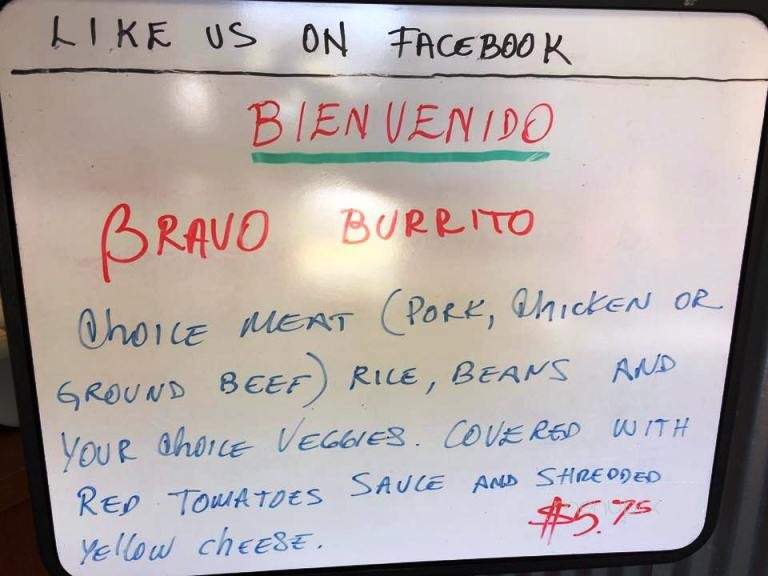 LIKE US ON FACEBOOK
BIENVENIDO
BRAVO BURRITO
CHOICE MEAT (PORK, CHICKEN OR
GROUND BEEF) RICE, BEANS AND
YOUR CHOICE VEGGIES. COVERED WITH
RED TOMATOES SAUCE AND SHREDDED
YELLOW CHEESE.
$5.75